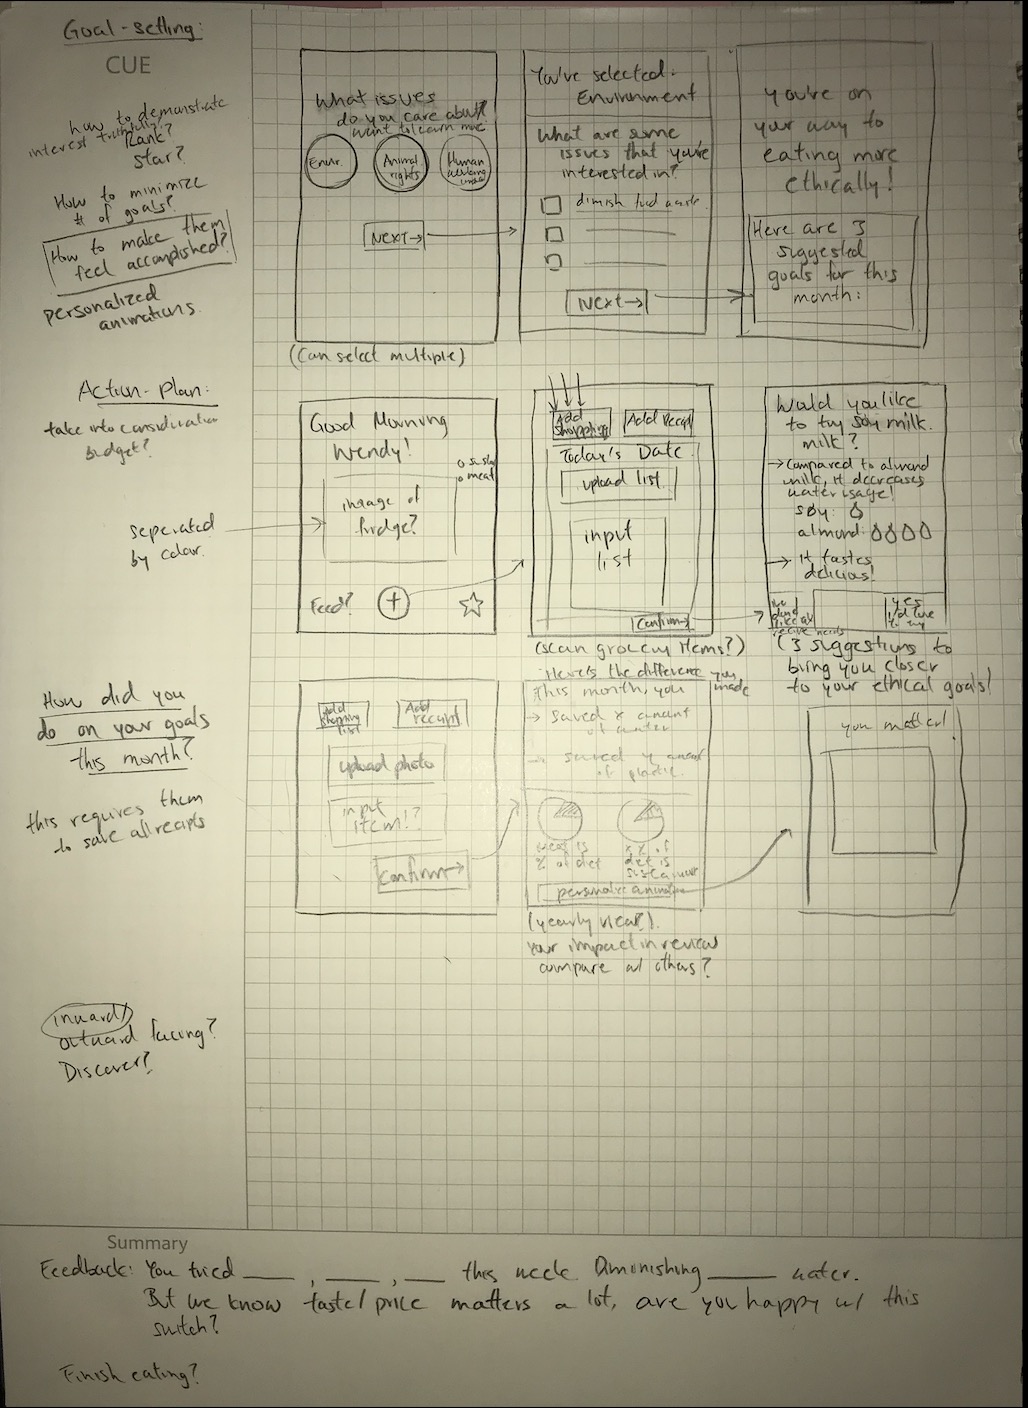 Goal-setting:
CUE
how to demonstrate
interest truthfully?
Rank?
star?
How to minimize
# of goals?
How to make them
feel accomplished?
personalized
animations.
What issues
do you care about/
want to learn more
Envir.
Animal
rights
Human
NEXT→
(Can select multiple)
You've selected:
Environment
What are some
issues that you're
interested in?
dimish food waste.
NEXT→
You're on
your way to
eating more
ethically!
Here are 3
suggested
goals for this
month:
Action-Plan:
take into consideration
budget?
seperated
by colour.
Good Morning
Wendy!
meat
image of
fridge?
Feed?
+
Add
shopping
Add Recipt
Today's Date
upload list
input
list
Confirm→
(scan grocery items?)
Would you like
to try soy milk.
milk?
→ Compared to almond
milk, it decreases
water usage!
soy:
almond:
→ It tastes
delicious!
yes
I'd love
to try
(3 suggestions to
bring you closer
to your ethical goals!
How did you
do on your goals
this month?
this requires them
to save all recipts
Add
shopping
list
Add
recipt
upload photo
input
item!?
Confirm→
Here's the difference you made
This month, you
→ saved x amount
of water
→ saved y amount
of plastic.
meat is
% of diet
x% of
diet is
personalize animation
(yearly view?).
Your impact in review
compare w/ others?
you matter!
inward/
outward facing?
Discover?
Summary
Feedback: You tried ____, ____, ____ this week. Diminishing ____ water.
But we know taste/price matters a lot, are you happy w/ this
switch?
Finish eating?